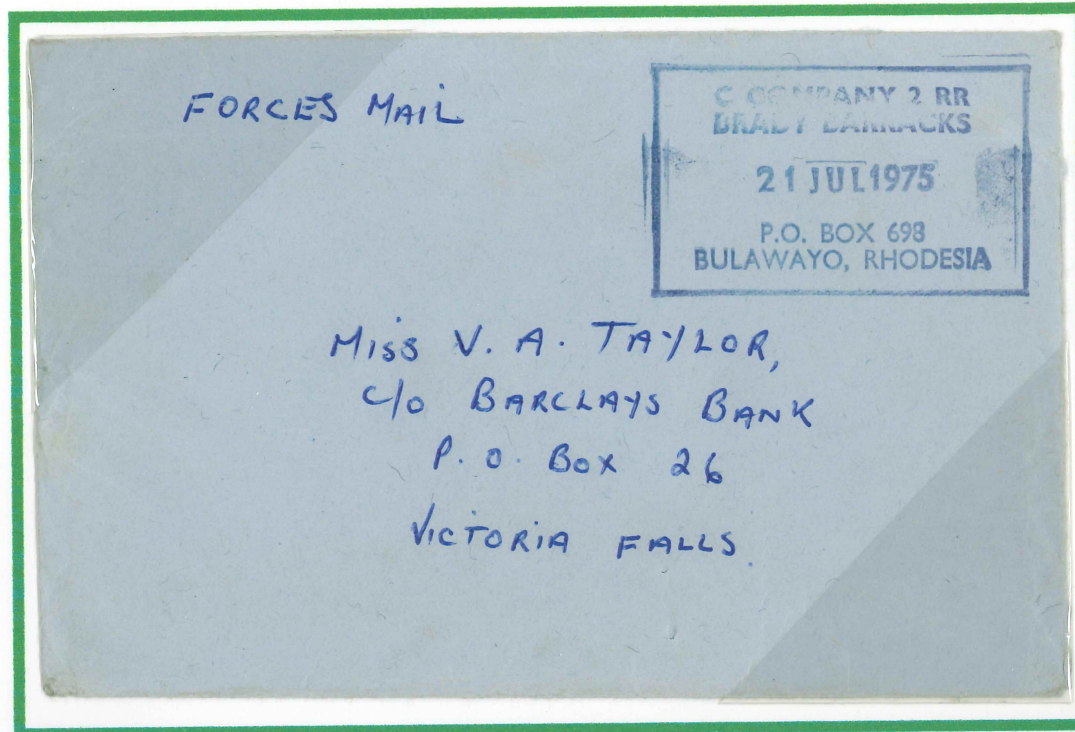 FORCES MAIL
C COMPANY 2 RR
BRADY BARRACKS
21 JUL 1975
P.O. BOX 698
BULAWAYO, RHODESIA
Miss V. A. TAYLOR,
c/o BARCLAYS BANK
P. O. Box 26
VICTORIA FALLS.